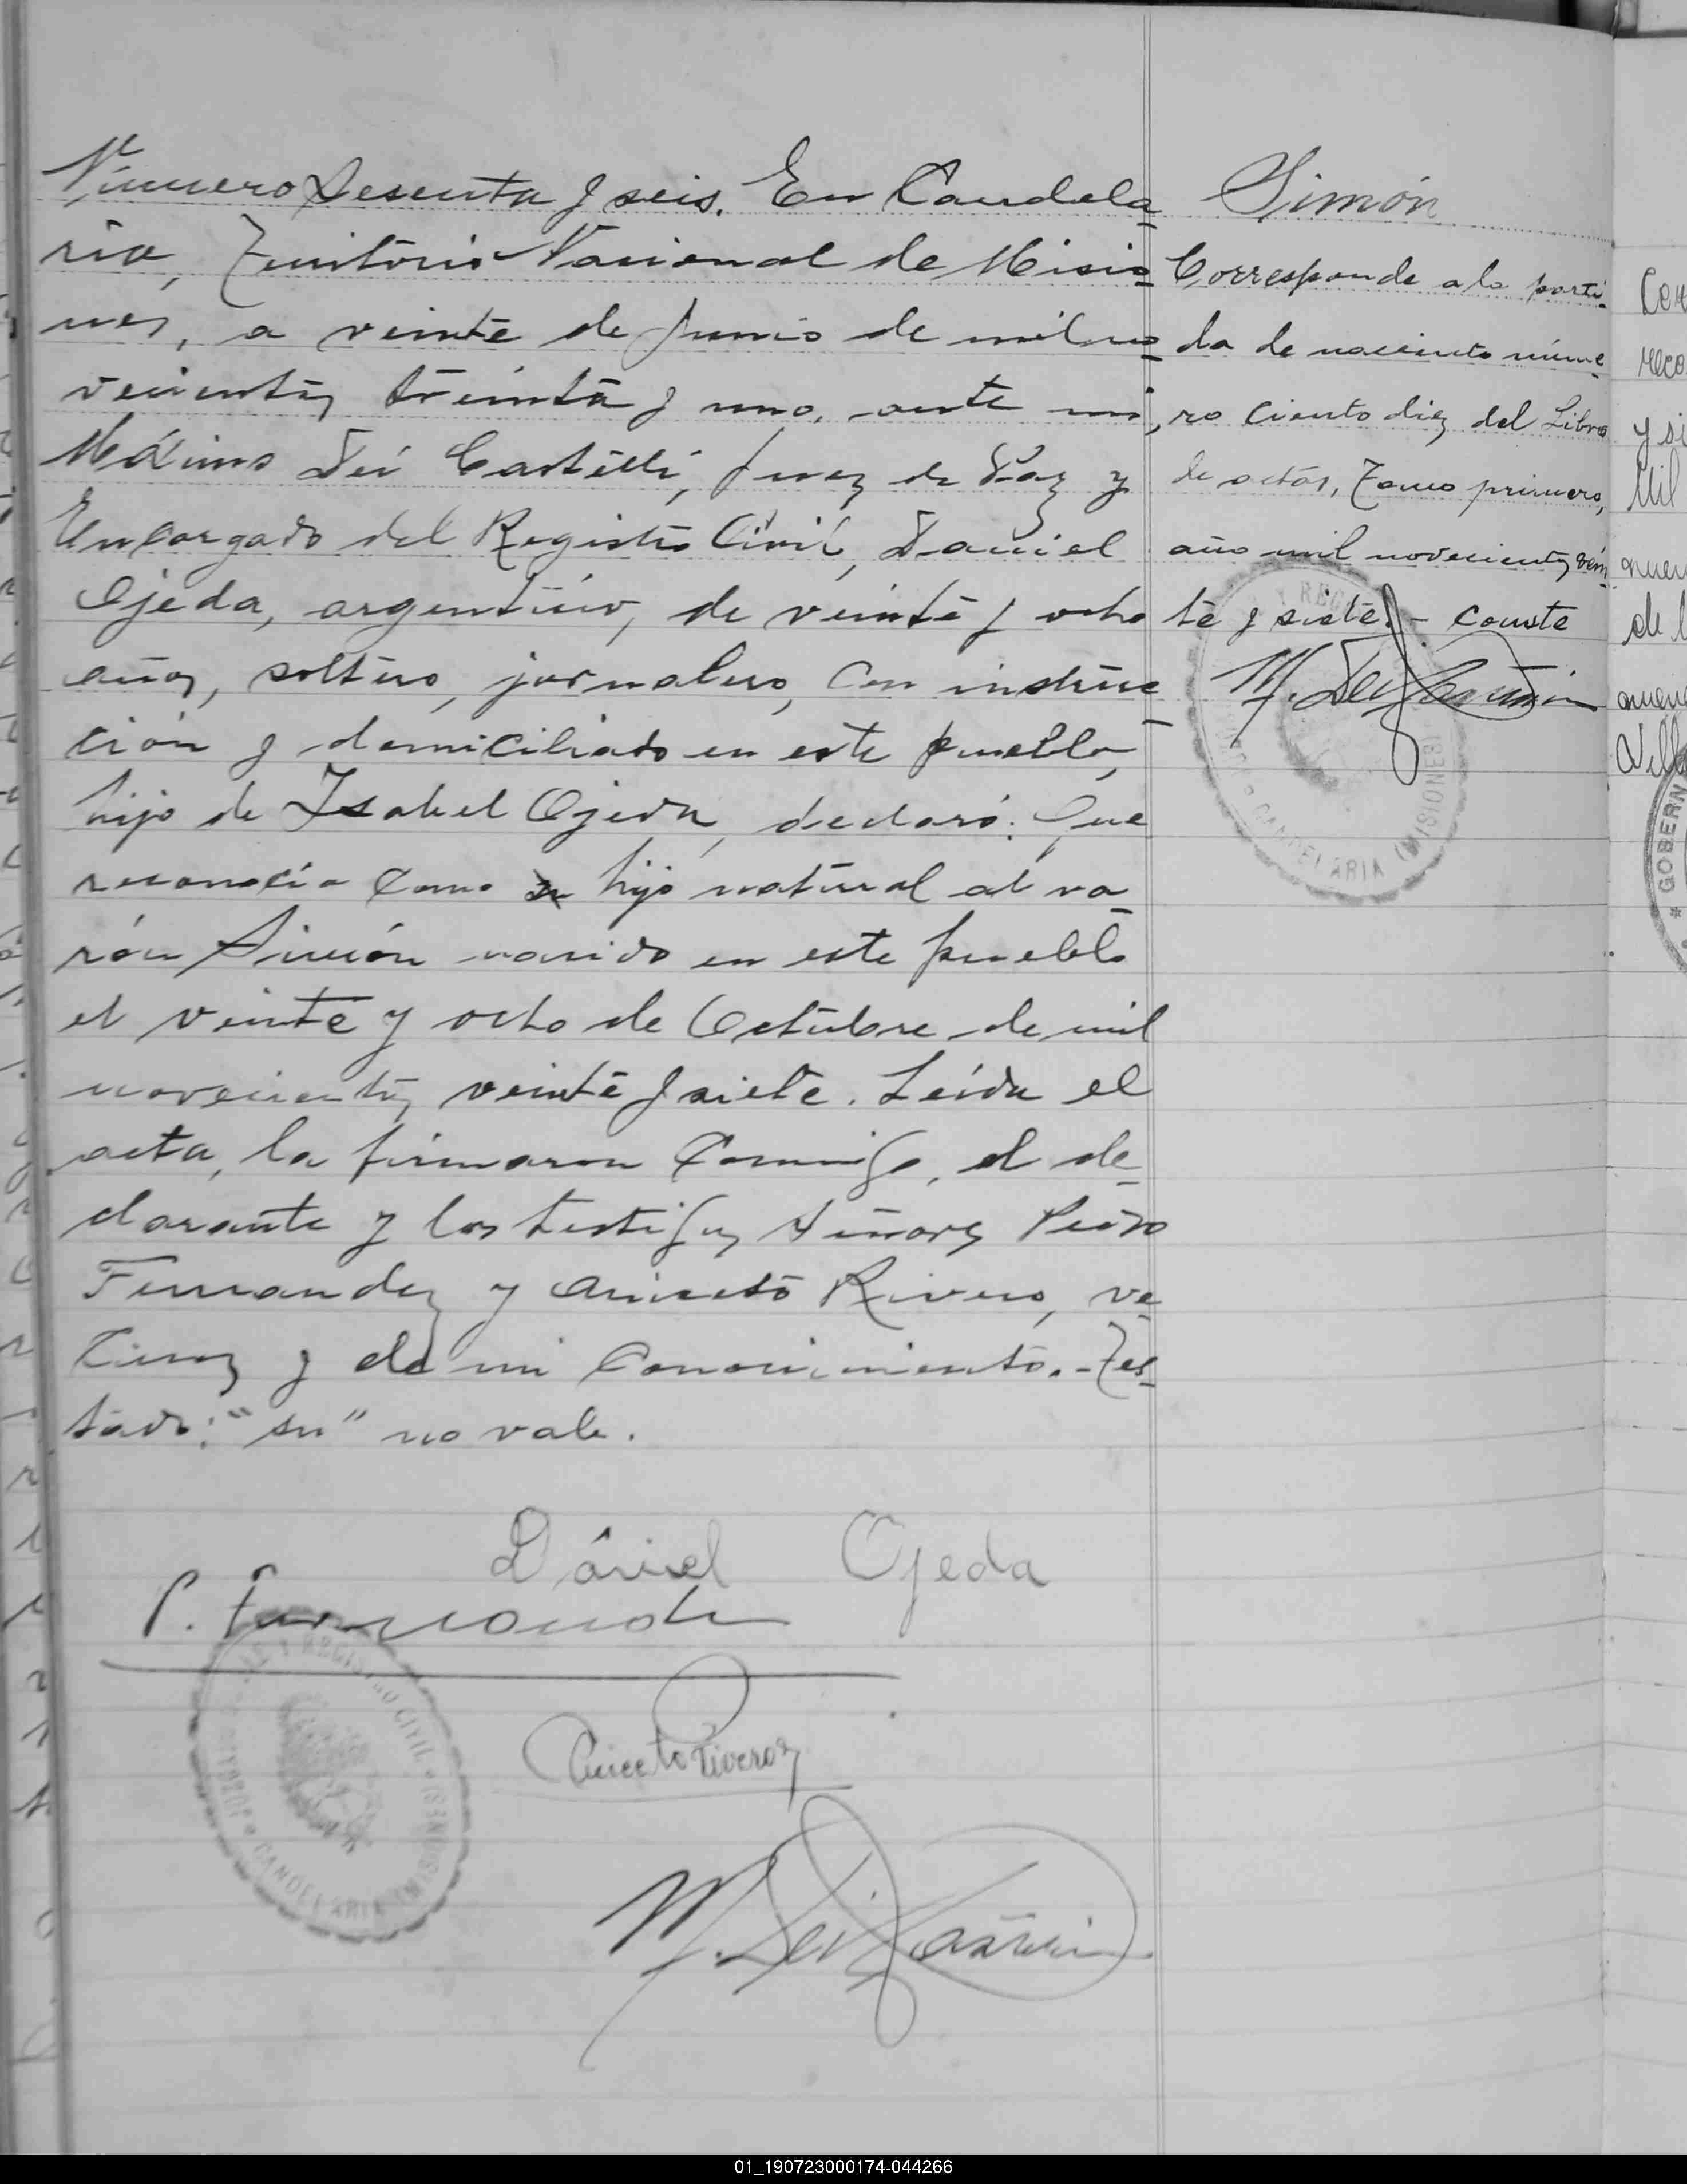 Número Sesenta y seis. En Candela-
ria, Territorio Nacional de Misio-
nes, a veinte de Junio de mil no-
vecientos treinta y uno, ante mi,
Máximo Dei Castelli, Juez de Paz y
Encargado del Registro Civil, Daniel
Ojeda, argentino, de veinte y ocho
años, soltero, jornalero, con instruc-
ción y domiciliado en este pueblo,
hijo de Isabel Ojeda, declaró: Que
reconocía como su hijo natural al va-
rón Simón nacido en este pueblo
el veinte y ocho de Octubre de mil
novecientos veinte y siete. Leída el
acta, la firmaron conmigo, el de-
clarante y los testigos Señores Pedro
Fernandez y Aniceto Rivero, ve-
cinos y de mi conocimiento.- Tes-
tado: "su" no vale.
Dániel Ojeda
P. Fernandez
Aniceto Riveros
Simón
Corresponde a la parti-
da de naciento núme-
ro ciento diez del Libro
de actas, Tomo primero,
año mil novecientos vein-
te y siete.- Conste
Y REG
CANDELARIA (MISIONES)
Y REGISTRO CIVIL
CANDELARIA (MISIONES)
y si
Mil
de l
* GOBERN
01_190723000174-044266